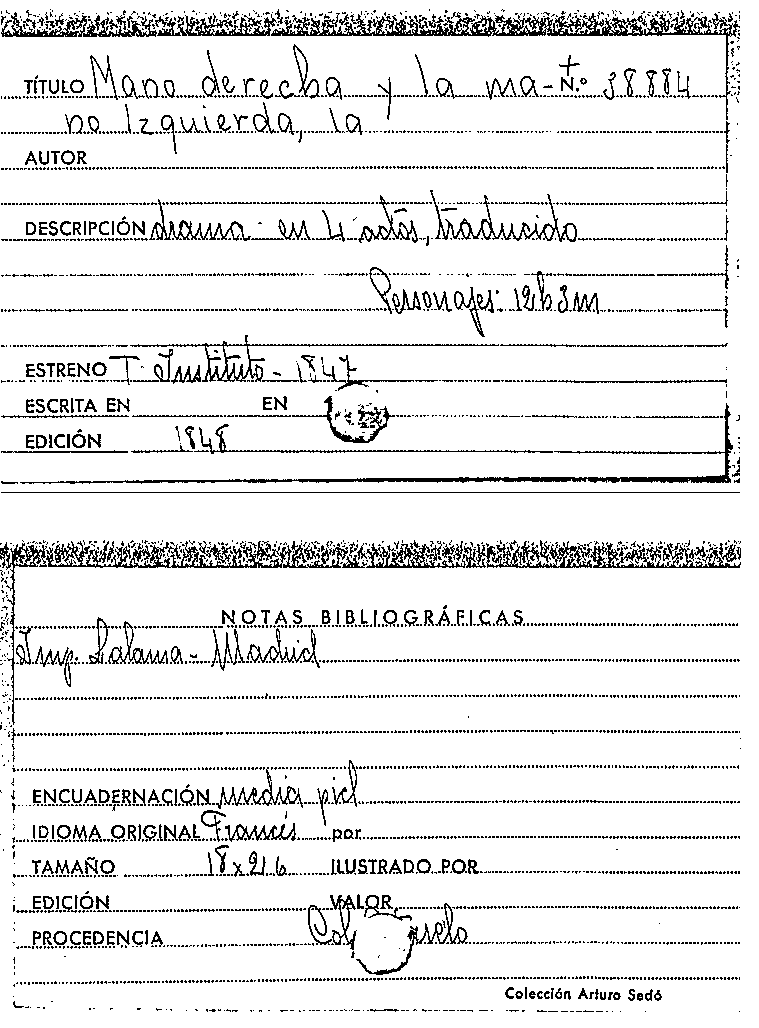 TÍTULO Mano derecha y la ma- N.º 38884
no Izquierda, la
AUTOR
DESCRIPCIÓN drama en 4 actos, traducido
Personajes: 12h 3m
ESTRENO T. Instituto - 1847
ESCRITA EN EN
EDICIÓN 1848
NOTAS BIBLIOGRÁFICAS
Imp. Lalama - Madrid
ENCUADERNACIÓN media piel
IDIOMA ORIGINAL Francés por
TAMAÑO 18 x ILUSTRADO POR
EDICIÓN VALOR
PROCEDENCIA
Colección Arturo Sedó